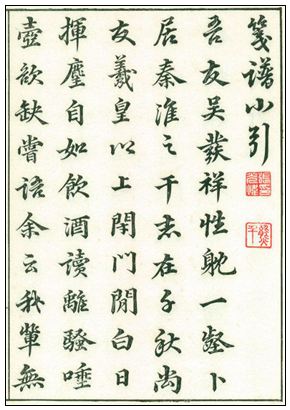 箋譜小引
吾友吳發祥性躭一壑卜
居秦淮之干志在千秋尚
友羲皇以上閉門閒白日
揮麈自如飲酒讀離騷唾
壺欲缺嘗語余云我輩無